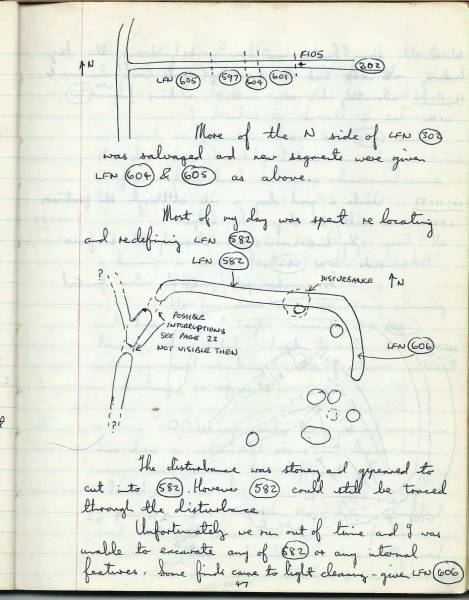 F105
↑N
302
LFN 605 597 604 601
More of the N side of LFN 302
was salvaged and new segments were given
LFN 604 & 605 as above.
Most of my day was spent relocating
and redefining LFN 582
LFN 582
DISTURBANCE ↑N
?
POSSIBLE
INTERRUPTIONS
SEE PAGE 22
NOT VISIBLE THEN
LFN 606
?
The disturbance was stoney and appeared to
cut into 582. However 582 could still be traced
through the disturbance.
Unfortunately we run out of time and I was
unable to excavate any of 582 or any internal
features. Some finds came to light cleaning - given LFN 606
47